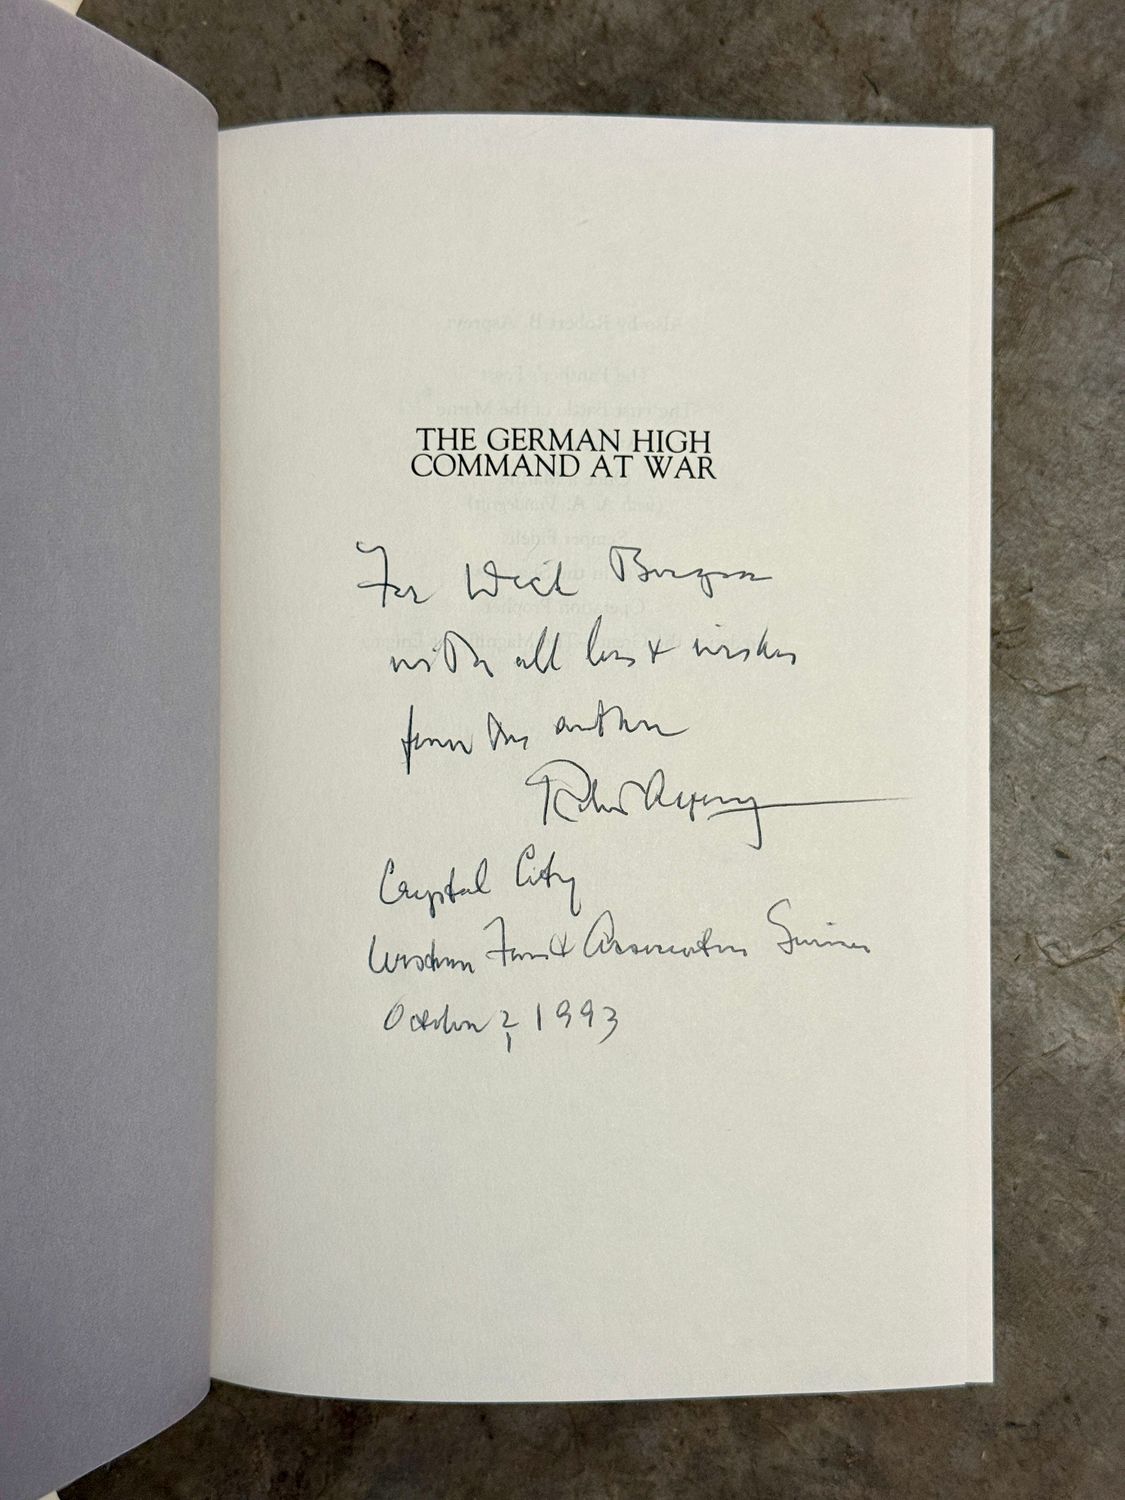 THE GERMAN HIGH
COMMAND AT WAR
For
with all best wishes
from the author
Robert Asprey
Crystal City
Western Front Association
October 2, 1993